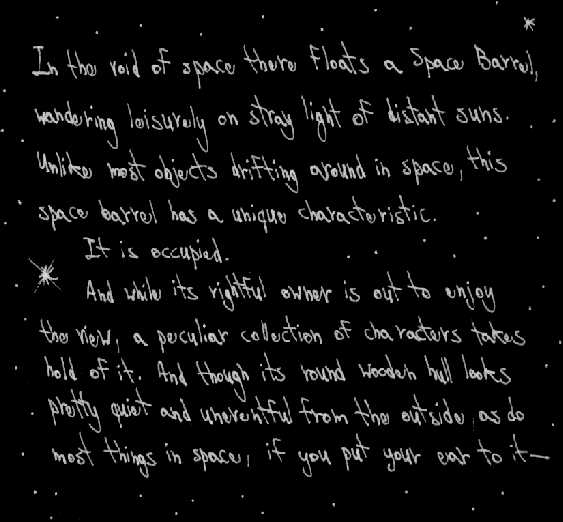 In the void of space there Floats a Space Barrel,
wandering leisurely on stray light of distant suns.
Unlike most objects drifting around in space, this
space barrel has a unique characteristic.
It is occupied.
And while its rightful owner is out to enjoy
the view, a peculiar collection of characters takes
hold of it. And though its round wooden hull looks
pretty quiet and uneventful from the outside, as do
most things in space, if you put your ear to it—